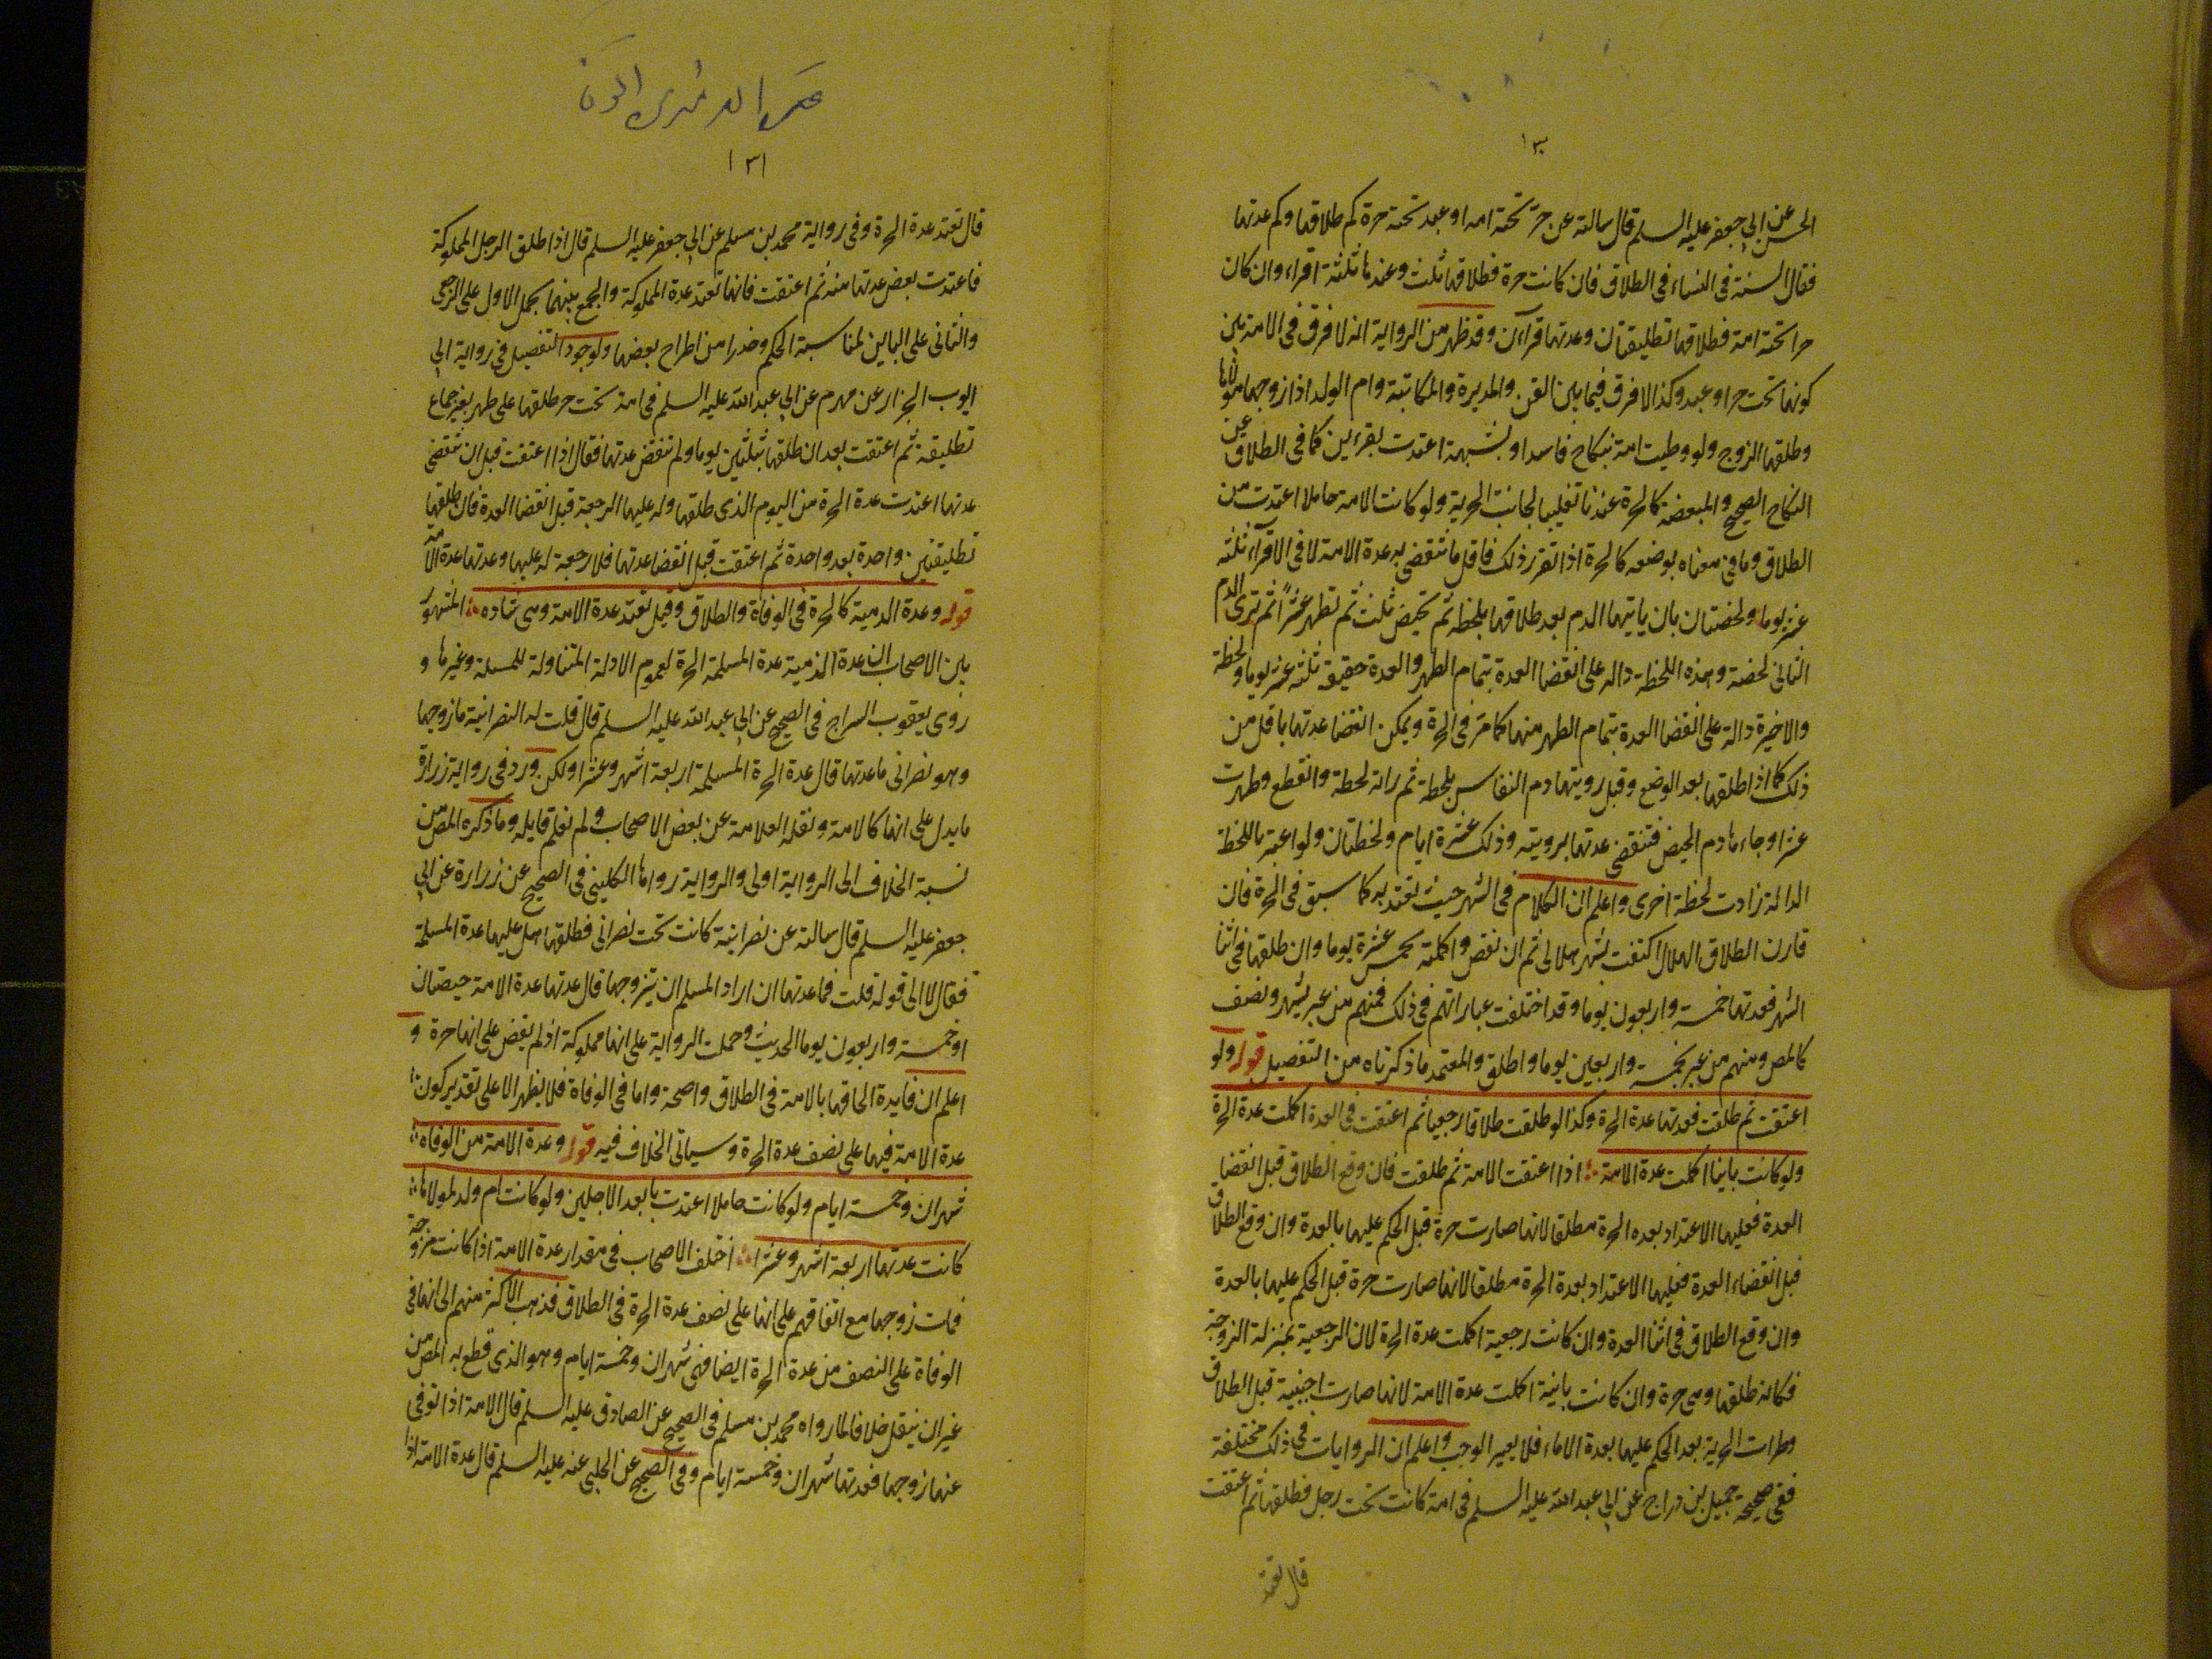 ١٣٠
الحسن عن ابى جعفر عليه السلم قال سالته عن حر تحته امه او عبد تحته حرة كم طلاقها وكم عدتها
فقال السنة فى النساء فى الطلاق فان كانت حرة فطلاقها ثلث وعدتها ثلثة اقراء وان كان
حر تحته امة فطلاقها تطليقتان وعدتها قرآن وقد ظهر من الرواية انه لا فرق فى الامة بين
كونها تحت حر او عبد وكذا لا فرق فيما بين القن والمدبرة والمكاتبة وام الولد اذا زوجها مولاها
وطلقها الزوج ولو وطيت امة بنكاح فاسد او بشبهة اعتدت بقرءين كما فى الطلاق عن
النكاح الصحيح والمبعضة كالحرة عندنا تغليبا لجانب الحرية ولو كانت الامة حاملا اعتدت من
الطلاق وما فى معناه بوضعه كالحرة اذا تقرر ذلك فاقل ما تنقضى به عدة الامة لا فى الاقراء ثلثة
عشر يوما ولحضتان بان ياتيها الدم بعد طلاقها بلحظة ثم تحيض ثلث ثم تطهر عشرا ثم ترى الدم
الثانى لحضة وهذه اللحظة داله على انقضا العدة بتمام الطهر والعدة حقيقة ثلثة عشر يوما ولحظة
والاخيرة دالة على انقضا العدة بتمام الطهر منها كما مر فى الحرة ويمكن انقضا عدتها باقل من
ذلك كما اذا طلقها بعد الوضع وقبل رويتها دم النفاس بلحظة ثم راته لحظة وانقطع وطهرت
عشرا وجاءها دم الحيض فتنقضى عدتها برويته وذلك عشرة ايام ولحظتان ولو اعتبر باللحظة
الدالة زادت لحظة اخرى واعلم ان الكلام فى الشهر حيث تعتد به كما سبق فى الحرة فان
قارن الطلاق الهلال اكتفت بشهر هلالى ثم ان نقص واكملته بخمس عشرة يوما وان طلقها فى اثنا
الشهر فعدتها خمسة واربعون يوما وقد اختلفت عباراتهم فى ذلك فمنهم من عبر بشهر ونصف
كالمص ومنهم من عبر بخمسة واربعين يوما واطلق والمعتمد ما ذكرناه من التفصيل قوله ولو
اعتقت ثم طلقت فعدتها عدة الحرة وكذا لو طلقت طلاقا رجعيا ثم اعتقت فى العدة اكملت عدة الحرة
ولو كانت باينا اكملت عدة الامة اذا اعتقت الامة ثم طلقت فان وقع الطلاق قبل انقضا
العدة فعليها الاعتداد بعده الحرة مطلقا لانها صارت حرة قبل الحكم عليها بالعدة وان وقع الطلاق
قبل انقضاء العدة فعليها الاعتداد بعدة الحرة مطلقا لانها صارت حرة قبل الحكم عليها بالعدة
وان وقع الطلاق فى اثنا العدة وان كانت رجعية اكملت عدة الحرة لان الرجعية بمنزلة الزوجة
فكانه طلقها وهى حرة وان كانت باينة اكملت عدة الامة لانها صارت اجنبية قبل الطلاق
وطرات الحرية بعد الحكم عليها بعدة الاماء فلا يغير الوجب واعلم ان الروايات فى ذلك مختلفة
ففى صحيحة جميل بن دراج عن ابى عبد الله عليه السلم فى امة كانت تحت رجل فطلقها ثم اعتقت
قال تعتد
١٣١
قال تعتد عدة الحرة وفى رواية محمد بن مسلم عن ابى جعفر عليه السلم قال اذا طلق الرجل المملوكة
فاعتدت بعض عدتها منه ثم اعتقت فانها تعتد عدة المملوكة والجمع بينهما بحمل الاول على الرجعى
والثانى على الباين لمناسبة الحكم وحذرا من اطراح بعضها ولوجود التفصيل فى رواية ابى
ايوب الخزاز عن مهزم عن ابى عبد الله عليه السلم فى امة تحت حر طلقها على طهر بغير جماع
تطليقة ثم اعتقت بعد ان طلقها بثلثين يوما ولم تنقض عدتها فقال اذا اعتقت قبل ان تنقضى
عدتها اعتدت عدة الحرة من اليوم الذى طلقها وله عليها الرجعة قبل انقضا العدة فان طلقها
تطليقتين واحدة بعد واحدة ثم اعتقت قبل انقضا عدتها فلا رجعة له عليها وعدتها عدة الامة
قوله وعدة الذمية كالحرة فى الوفاة والطلاق وقيل تعتد عدة الامة وهى شاده المشهور
بين الاصحاب ان عدة الذمية عدة المسلمة الحرة لعموم الادلة المتناولة للمسلمة وغيرها و
روى يعقوب السراج فى الصحيح عن ابى عبد الله عليه السلم قال قلت له النصرانية مات زوجها
وهو نصرانى ما عدتها قال عدة الحرة المسلمة اربعة اشهر وعشرا ولكن ورد فى رواية زرارة
ما يدل على انها كالامة ونقله العلامة عن بعض الاصحاب ولم نعلم قايله وما ذكره المص من
نسبة الخلاف الى الرواية اولى والرواية رواها الكلينى فى الصحيح عن زرارة عن ابى
جعفر عليه السلم قال سالته عن نصرانية كانت تحت نصرانى فطلقها هل عليها عدة المسلمة
فقال لا الى قوله قلت فما عدتها ان اراد المسلم ان يتزوجها قال عدتها عدة الامة حيضتان
او خمسة واربعون يوما الحديث وحملت الرواية على انها مملوكة اذ لم ينص على انها حرة و
اعلم ان فايدة الحاقها بالامة فى الطلاق واضحة واما فى الوفاة فلا يظهر الا على تقدير كون
عدة الامة فيها على نصف عدة الحرة وسياتى الخلاف فيه قوله وعدة الامة من الوفاه
شهران وخمسة ايام ولو كانت حاملا اعتدت بابعد الاجلين ولو كانت ام ولد لمولاها
كانت عدتها اربعة اشهر وعشرا اختلف الاصحاب فى مقدار عدة الامة اذا كانت مزوجة
فمات زوجها مع اتفاقهم على انها على نصف عدة الحرة فى الطلاق فذهب الاكثر منهم الى انها فى
الوفاة على النصف من عدة الحرة ايضا فهى شهران وخمسة ايام وهو الذى قطع به المص من
غير ان ينقل خلافا لما رواه محمد بن مسلم فى الصحيح عن الصادق عليه السلم قال الامة اذا توفى
عنها زوجها فعدتها شهران وخمسة ايام وفى الصحيح عن الحلبى عنه عليه السلم قال عدة الامة اذا